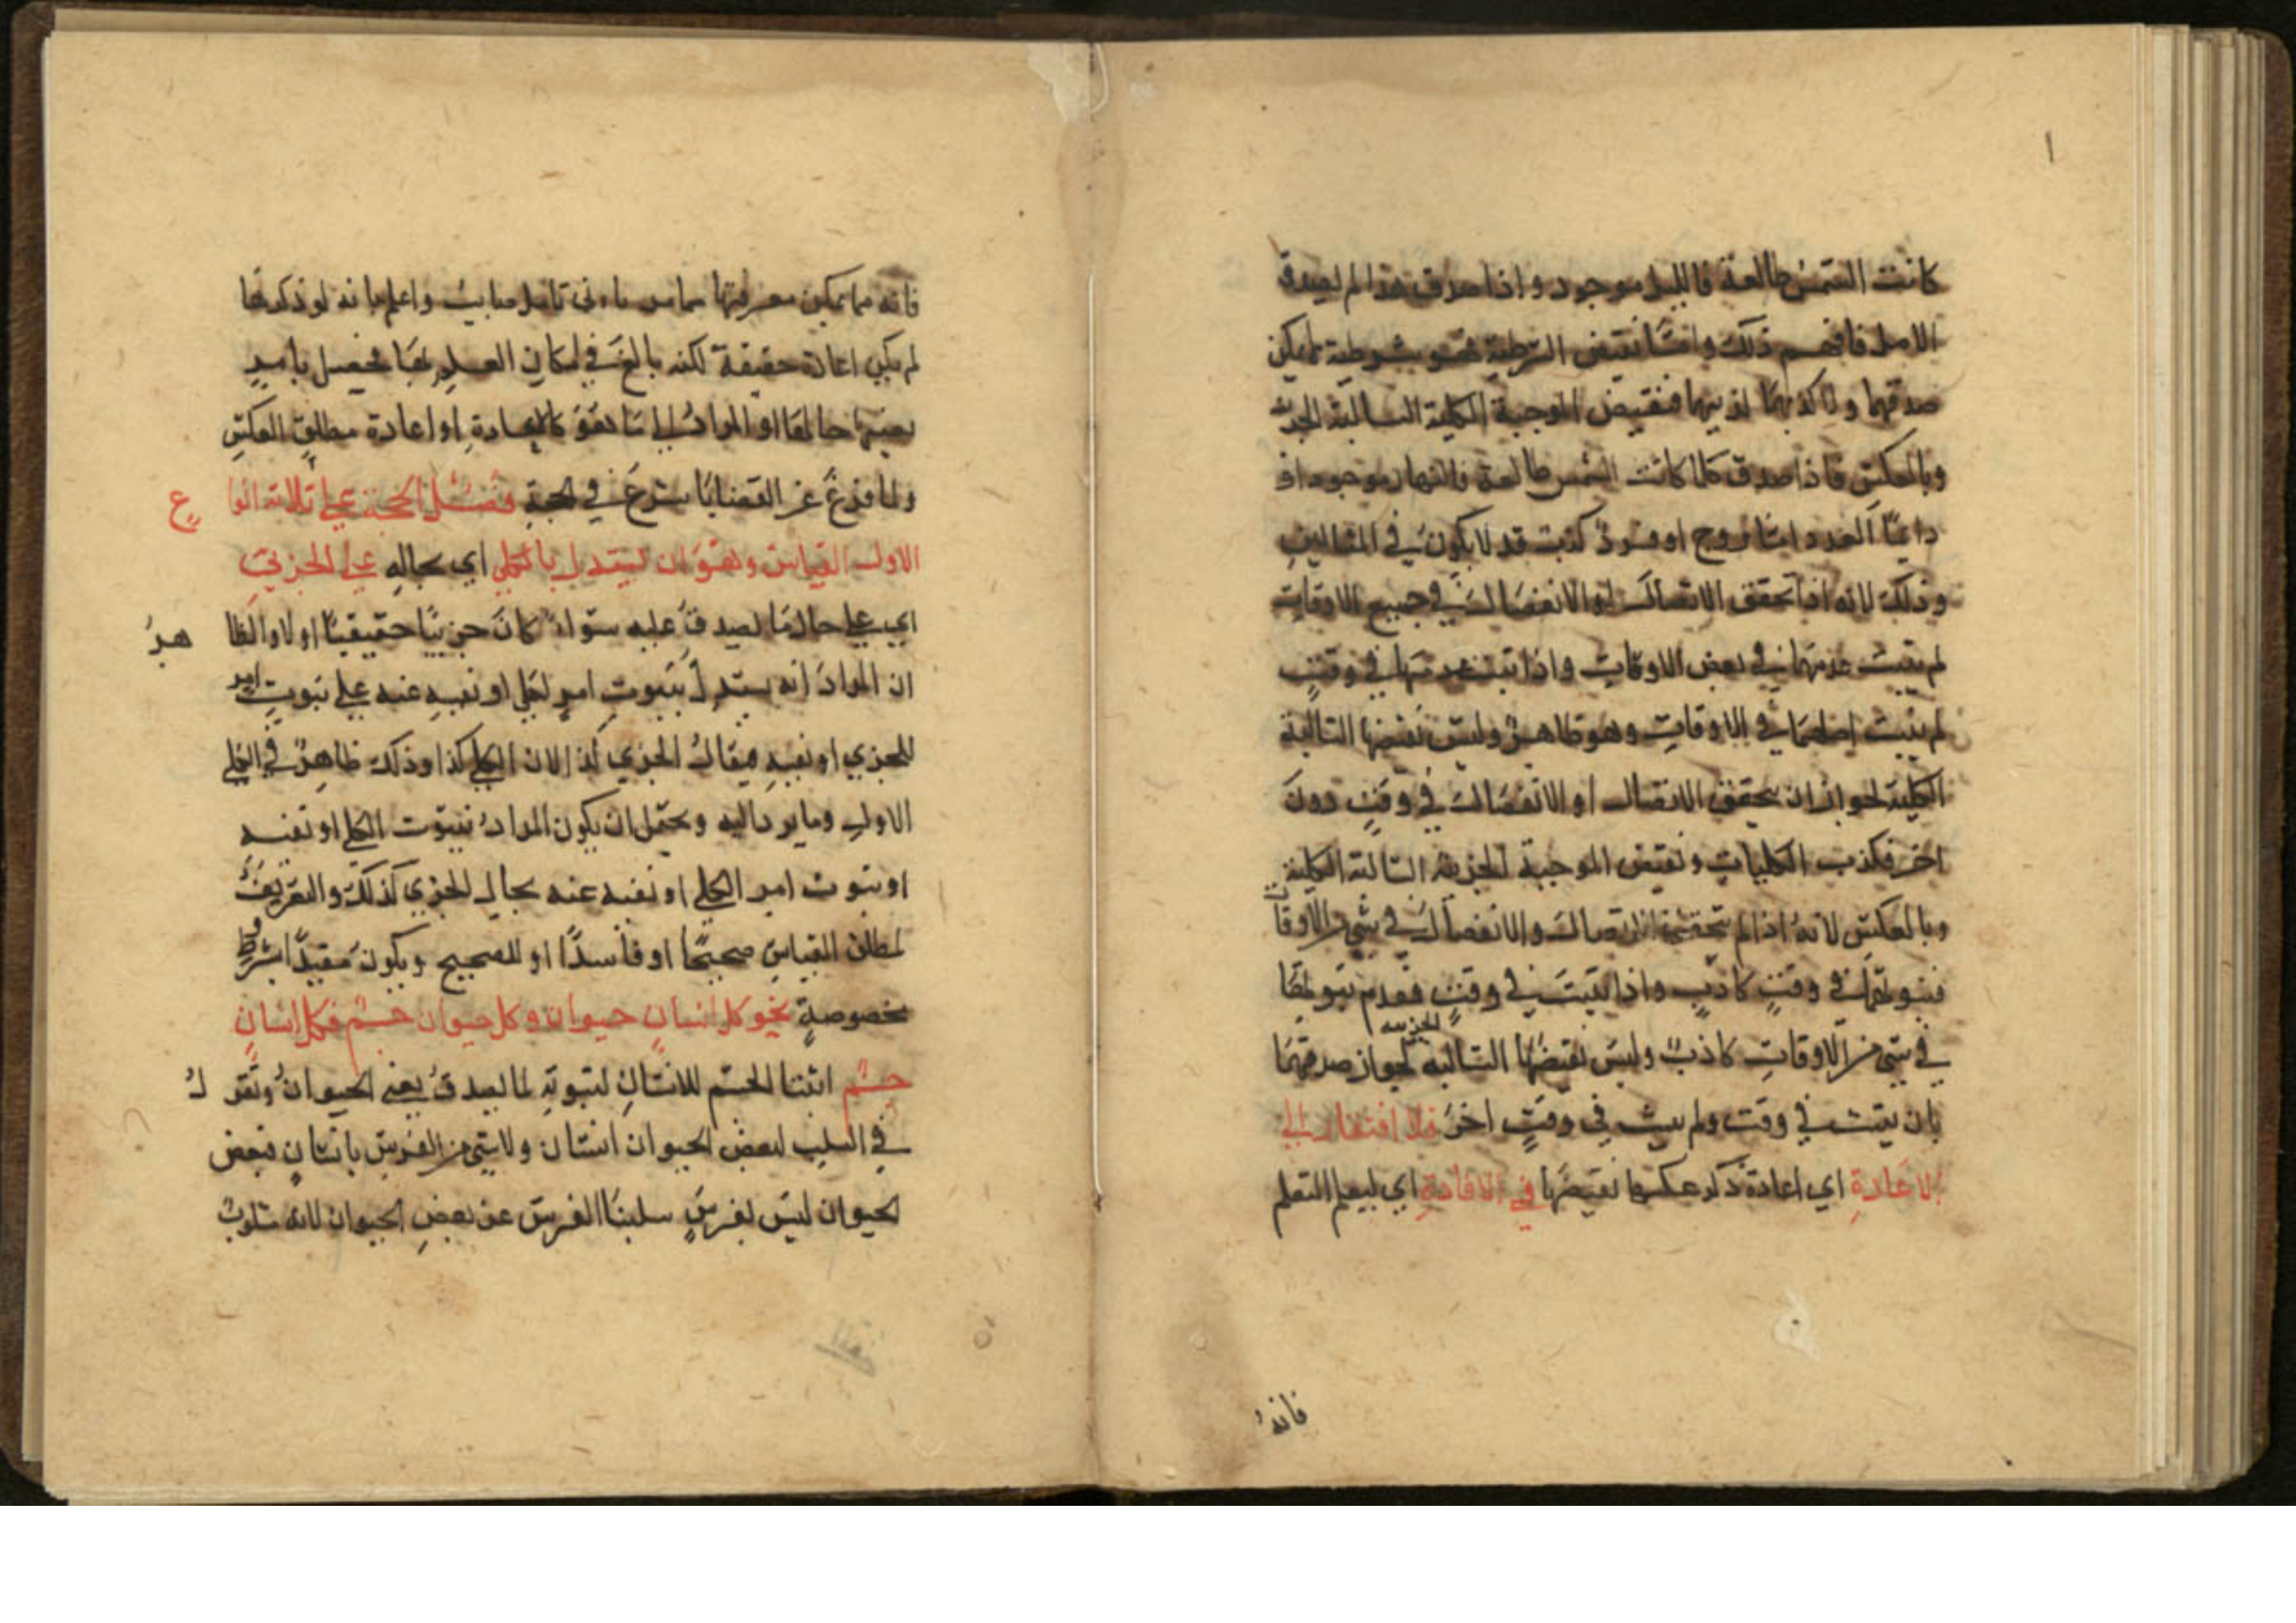 كانت الشمس طالعة فالليل موجود واذا صدق هذا لم يصدق
الاصل فافهم ذلك وامّا نقيض الشرطية فهو شرطية لم يكن
صدقهما ولا كذبهما فنقيض الموجبة الكلية السالبة الجزئية
وبالعكس فاذا صدق كلما كانت الشمس طالعة فالنهار موجود او
دايمًا العدد امّا زوج او فرد كذبت قد لا يكون في المثالين
وذلك لانه اذا تحقق الاتصال او الانفصال في جميع الاوقات
لم يثبت عدمهما في بعض الاوقات واذا ثبت عدمهما في وقتٍ
لم يثبت في الاوقات وهو ظاهر وليس نقيضها السالبة
الكلية لجواز ان يتحقق الاتصال او الانفصال في وقتٍ دون
اخر فكذب الكليات ونقيض الموجبة الجزئية السالبة الكلية
وبالعكس لانه اذا لم يتحقق الاتصال والانفصال في شيء من الاوقات
فثبوتهما في وقتٍ كاذب واذا ثبت في وقتٍ فعدم ثبوتها
في شيء من الاوقاتِ كاذبٌ وليس نقيضها السالبة الجزئية لجواز صدقهما
بان يثبت في وقت ولم يثبت في وقتٍ اخرَ فلا افتقار الى
الاعادةِ اي اعادة ذكر عكسها نقيضها في الافادةِ اي ليعلم المتعلم
فانهُ
فانه مما يمكن معرفتها مما مر بادنى تامل واعلم بانه لو ذكرها
لم يكن اعادة حقيقة لكنه بالغ في امكان العلم بها
بعينها او المراد كالاعادةِ او اعادة مطلق العكسِ
ولما فرغ عن القضايا شرع في الحجةِ فصل الحجة على ثلاثة انواع
الاول القياس وهو ان يستدل بالكلي اي بحالِه على الجزئيِ
اي على حال ما يصدق عليه سواء كان جزئيًا حقيقيًا اولا والظاهرُ
ان المراد انه يستدل بثبوتِ امرٍ لكلي او نفيهِ عنه على ثبوتِ امرٍ
للجزي او نفيهِ فيقال الجزي كذا لان الكلي كذا وذلك ظاهر في
الاول وما يرد اليه ويحتمل ان يكون المراد بثبوت الكلي او نفيه
او ثبوت امر الكلي او نفيه عنه بحال الجزي كذلك والتعريفُ
لمطلق القياسِ صحيحًا او فاسدًا او للصحيح ويكون مقيدًا بشروط
مخصوصةٍ نحو كل انسانٍ حيوان وكل حيوان جسم فكل انسانٍ
جسم اثبتنا الجسم للانسانِ لثبوتِه لما يصدق يعني الحيوانُ وتقولُ
في السلب لبعض الحيوان انسان ولا شيء من الفرس بانسانٍ فبعض
الحيوان ليس بفرسٍ سلبنا الفرس عن بعضِ الحيوان لانه مسلوبٌ